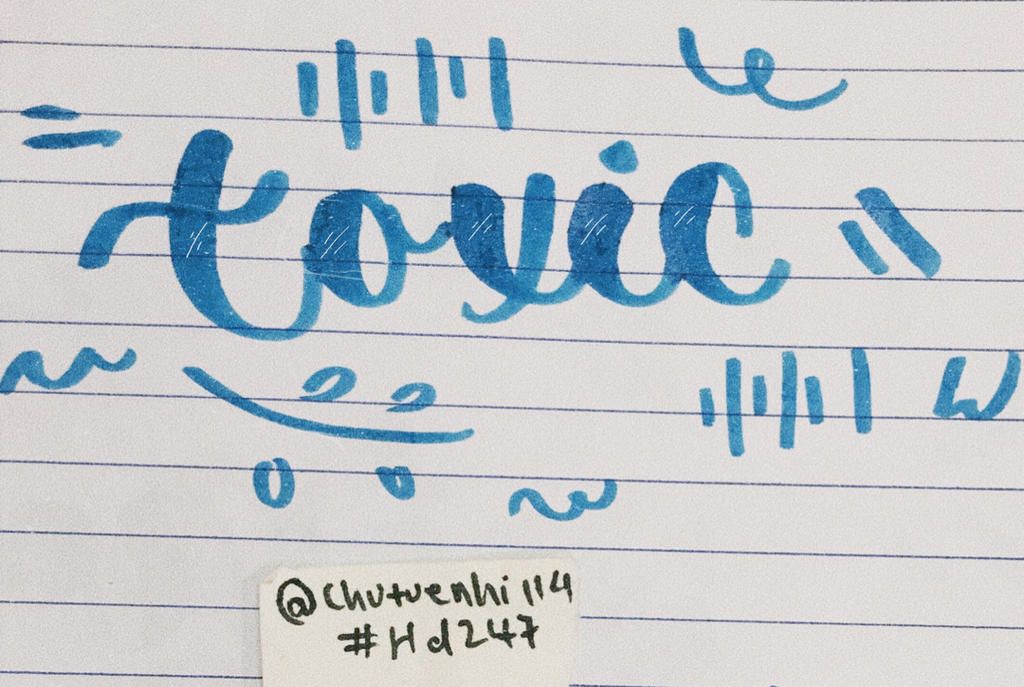 toxic
@chutuenhi114
#Hd247